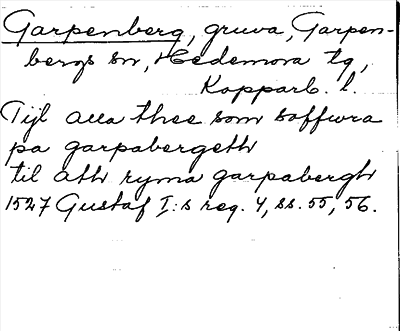 Garpenberg, gruva, Garpen-
bergs sn, Hedemora tg,
Kopparb. l.
Tijl alla thee som soffwra
pa garpabergeth
til ath ryma garpabergh
1527 Gustaf I:s reg. 4, ss. 55, 56.